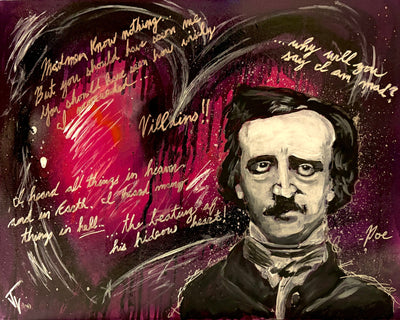 Madmen know nothing.
But you should have seen me.
You should have seen how wisely
I proceeded...
... why will you
say I am mad?
Villains!!
I heard all things in heaven
and in Earth. I heard many
things in hell.
... the beating of
his hideous heart!
-Poe